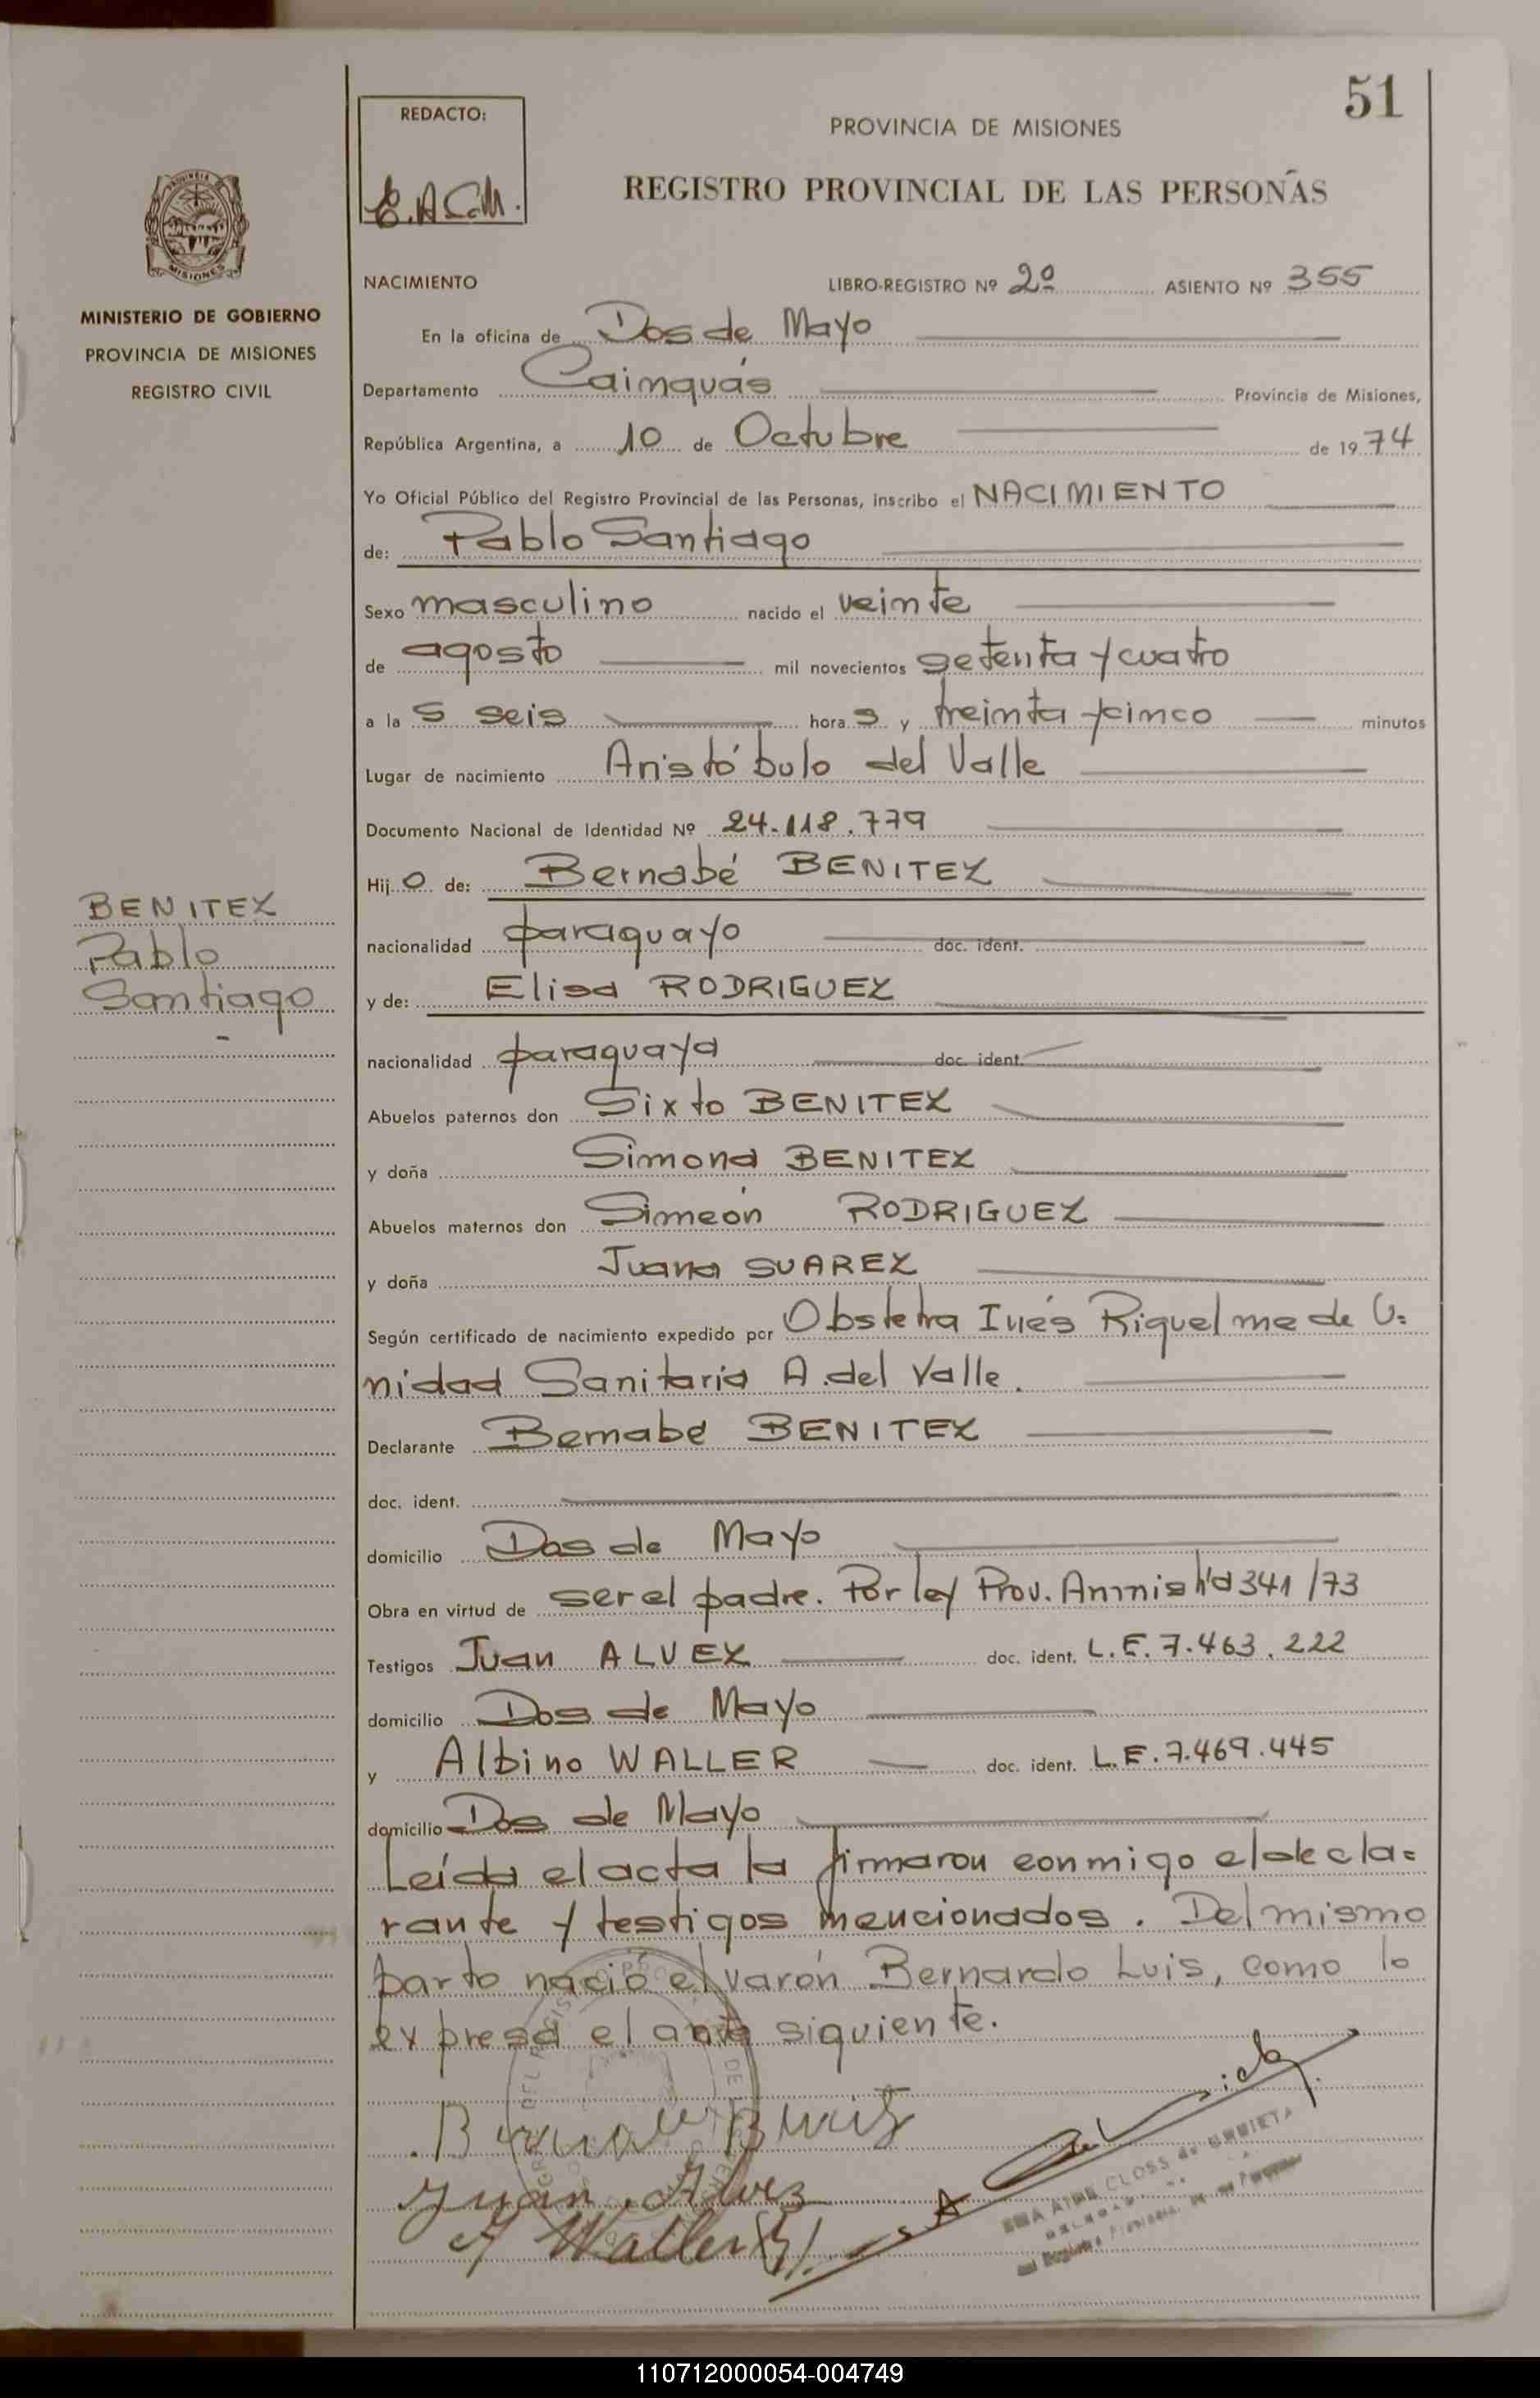 51
REDACTO:
E.A.C.M.
PROVINCIA DE MISIONES
REGISTRO PROVINCIAL DE LAS PERSONAS
MISIONES
MINISTERIO DE GOBIERNO
PROVINCIA DE MISIONES
REGISTRO CIVIL
NACIMIENTO LIBRO-REGISTRO Nº 2º ASIENTO Nº 355
En la oficina de Dos de Mayo
Departamento Cainguás Provincia de Misiones,
República Argentina, a 10 de Octubre de 1974
Yo Oficial Público del Registro Provincial de las Personas, inscribo el NACIMIENTO
de: Pablo Santiago
Sexo masculino nacido el veinte
de agosto mil novecientos setenta y cuatro
a la s seis hora s y treinta y cinco minutos
Lugar de nacimiento Aristóbulo del Valle
Documento Nacional de Identidad Nº 24.118.779
Hij o de: Bernabé BENITEZ
BENITEZ
Pablo
Santiago
nacionalidad paraguayo doc. ident.
y de: Elisa RODRIGUEZ
nacionalidad paraguaya doc. ident.
Abuelos paternos don Sixto BENITEZ
y doña Simona BENITEZ
Abuelos maternos don Simeón RODRIGUEZ
y doña Juana SUAREZ
Según certificado de nacimiento expedido por Obstetra Inés Riquelme de U=
nidad Sanitaria A. del Valle.
Declarante Bernabé BENITEZ
doc. ident.
domicilio Dos de Mayo
Obra en virtud de ser el padre. Por ley Prov. Amnistía 341/73
Testigos Juan ALVEZ doc. ident. L.E. 7.463.222
domicilio Dos de Mayo
y Albino WALLER doc. ident. L.E. 7.469.445
domicilio Dos de Mayo
Leída el acta la firmaron conmigo el decla=
rante y testigos mencionados. Del mismo
parto nació el varón Bernardo Luis, como lo
expresa el acta siguiente.
Juan Alvez
A Waller
CLOSS de URRIETA
110712000054-004749